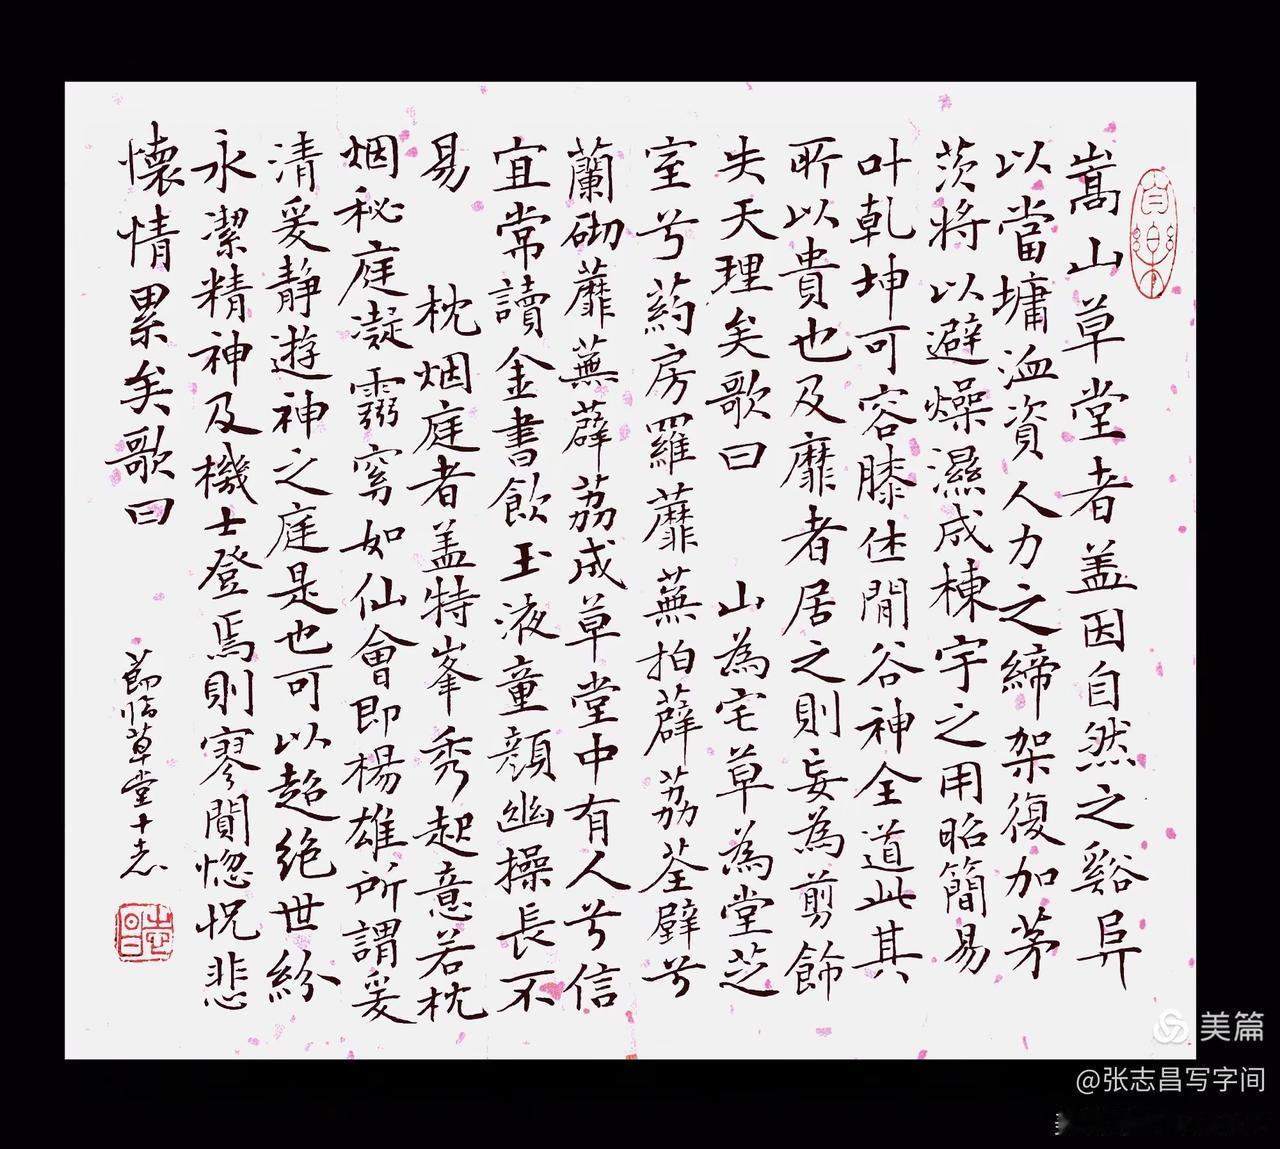 嵩山草堂者盖因自然之谿阜
以當墉洫資人力之締架復加茅
茨將以避燥濕成棟宇之用昭簡易
叶乾坤可容膝休閒谷神全道此其
所以貴也及靡者居之則妄為剪飾
失天理矣歌曰 山為宅草為堂芝
室兮葯房羅蘼蕪拍薜荔荃壁兮
蘭砌蘼蕪薜荔成草堂中有人兮信
宜常讀金書飲玉液童顔幽操長不
易 枕烟庭者盖特峯秀起意若枕
烟秘庭凝霛窅如仙會即楊雄所謂爰
清爰静遊神之庭是也可以超绝世紛
永潔精神及機士登焉則寥闃惚怳悲
懷情累矣歌曰
節临草堂十志
志昌
美篇
@张志昌写字间